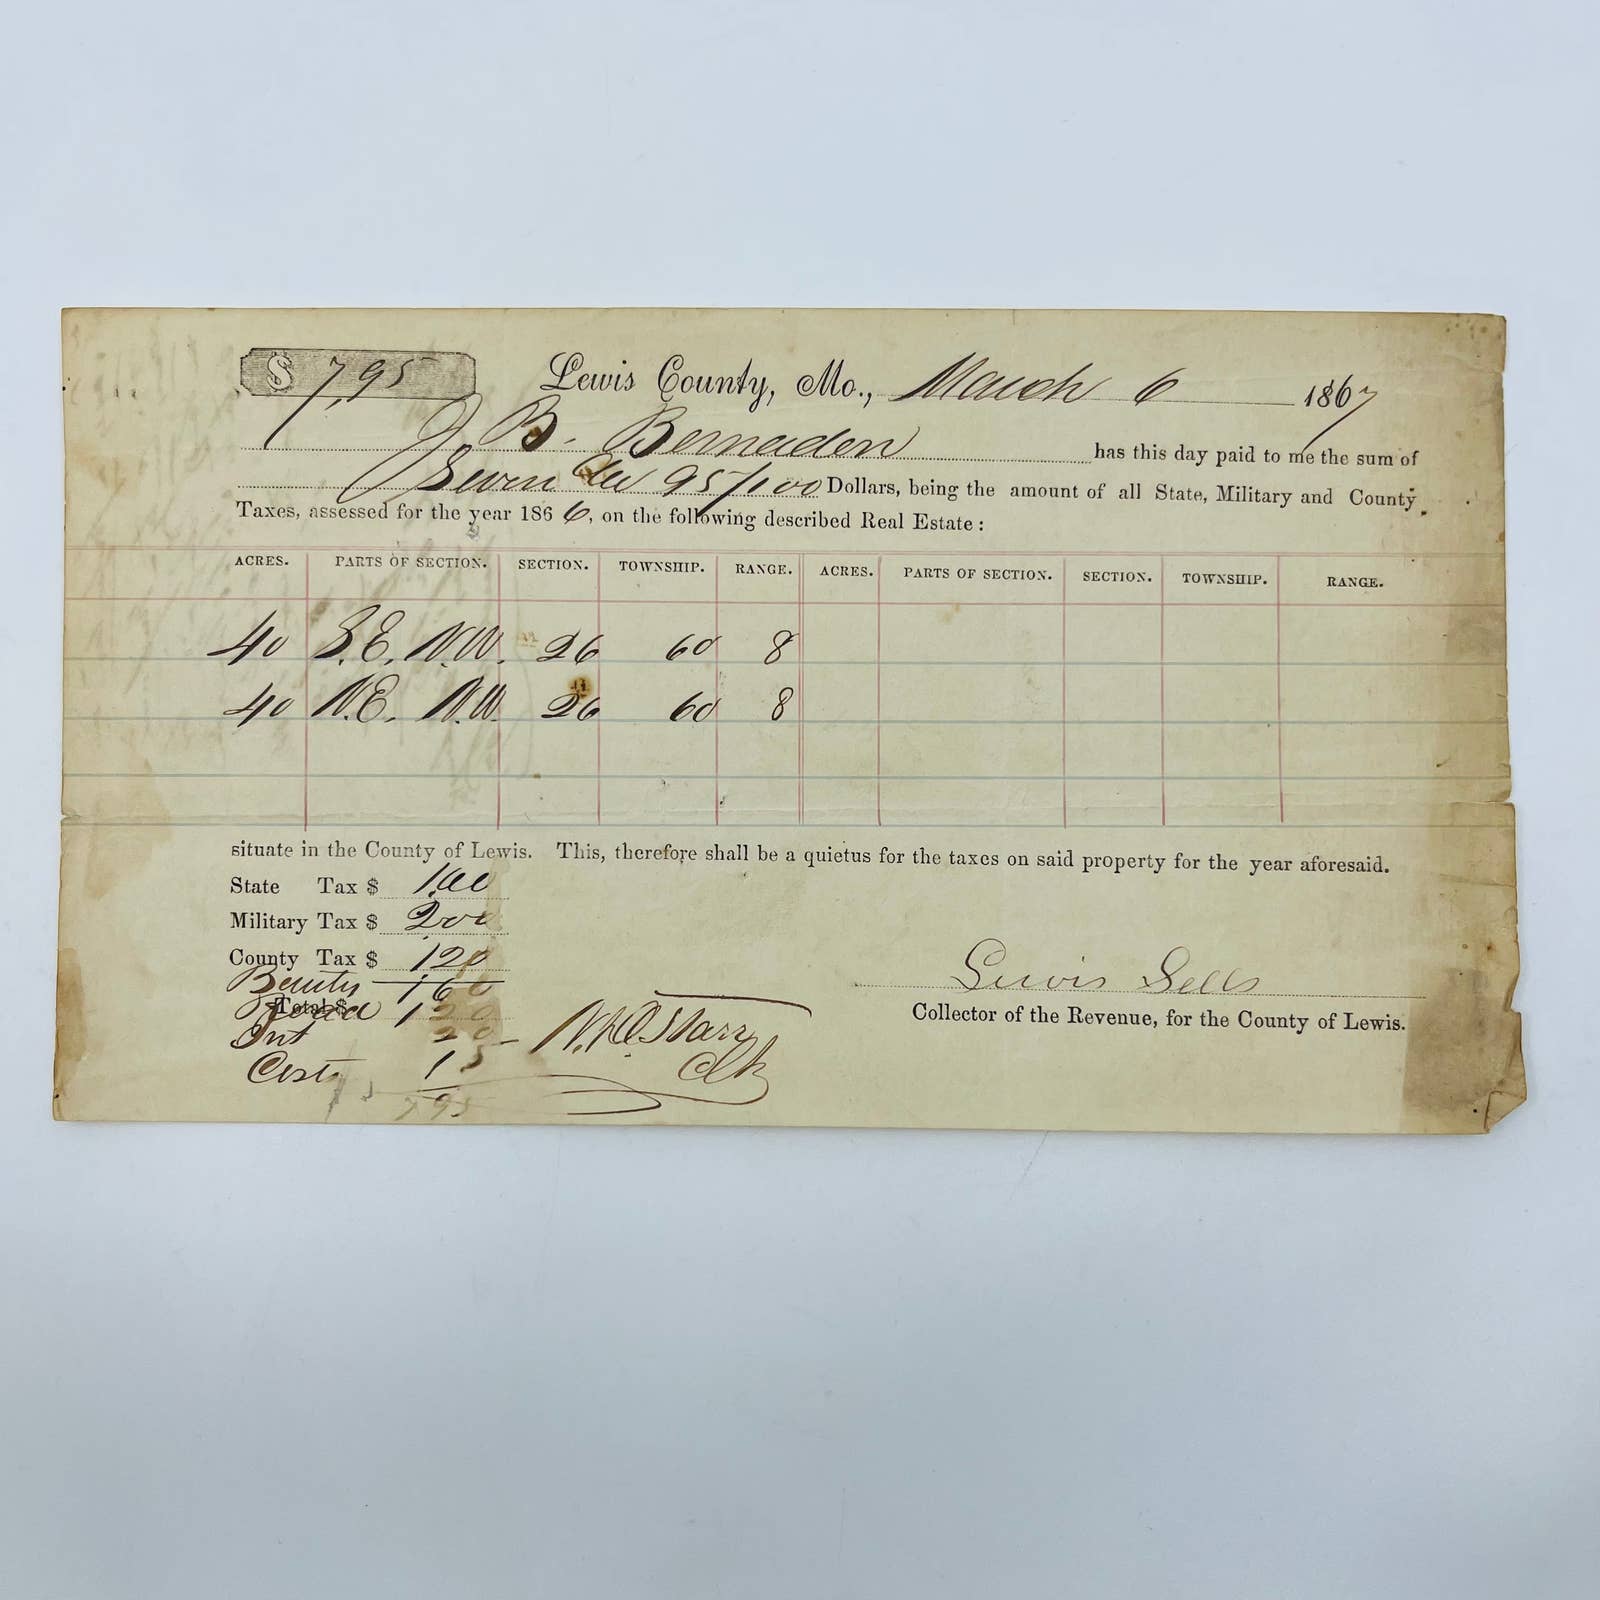 $ 7,95 Lewis County, Mo., March 6 1867
J. B. has this day paid to me the sum of
Seven & 95/100 Dollars, being the amount of all State, Military and County
Taxes, assessed for the year 1866, on the following described Real Estate:
ACRES. PARTS OF SECTION. SECTION. TOWNSHIP. RANGE. ACRES. PARTS OF SECTION. SECTION. TOWNSHIP. RANGE.
40 S.E. N.W. 26 60 8
40 N.E. N.W. 26 60 8
situate in the County of Lewis. This, therefore shall be a quietus for the taxes on said property for the year aforesaid.
State Tax $ 1.00
Military Tax $ 2.00
County Tax $ 120
160
Total $ 120
Int 20
Cost 15
795
Clk
Lewis Sells
Collector of the Revenue, for the County of Lewis.